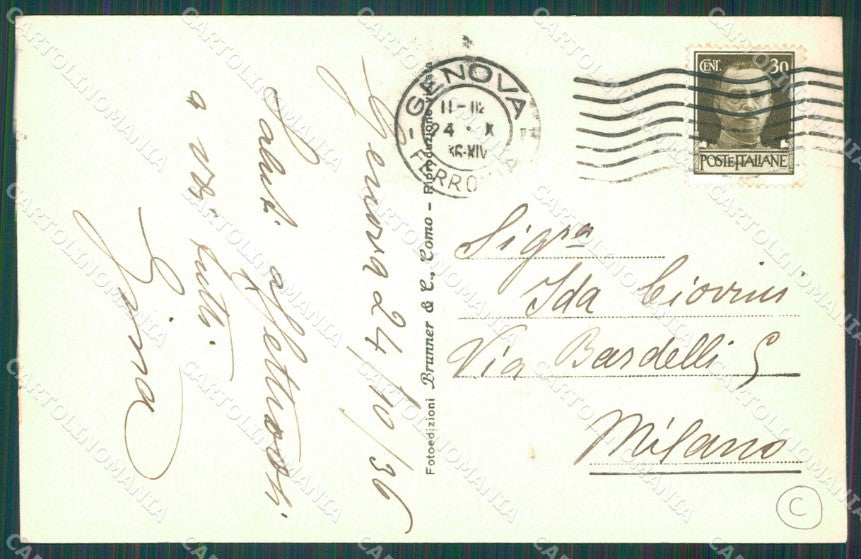 Genova 24/10/36
Saluti affettuosi
a voi tutti.
Gina
Fotoedizioni Brunner & C., Como - Riproduzione vietata
GENOVA
11-12
24 · X
36-XIV
FERROVIA
CENT. 30
POSTE ITALIANE
Sigra
Ida Ciovini
Via Bardelli 5
Milano
C
CARTOLINOMANIA